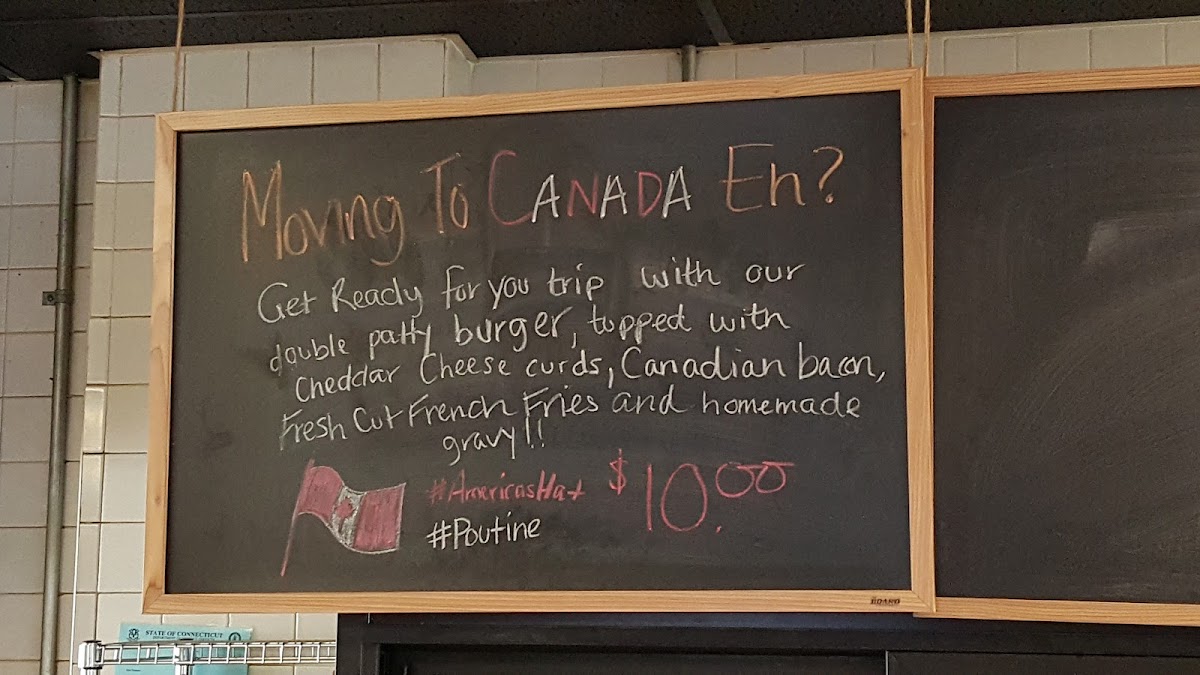 Moving To CANADA Eh?
Get Ready for you trip with our
double patty burger, topped with
Cheddar Cheese curds, Canadian bacon,
Fresh Cut French Fries and homemade
gravy!!
#AmericasHat $10.00
#Poutine
BOARD
STATE OF CONNECTICUT